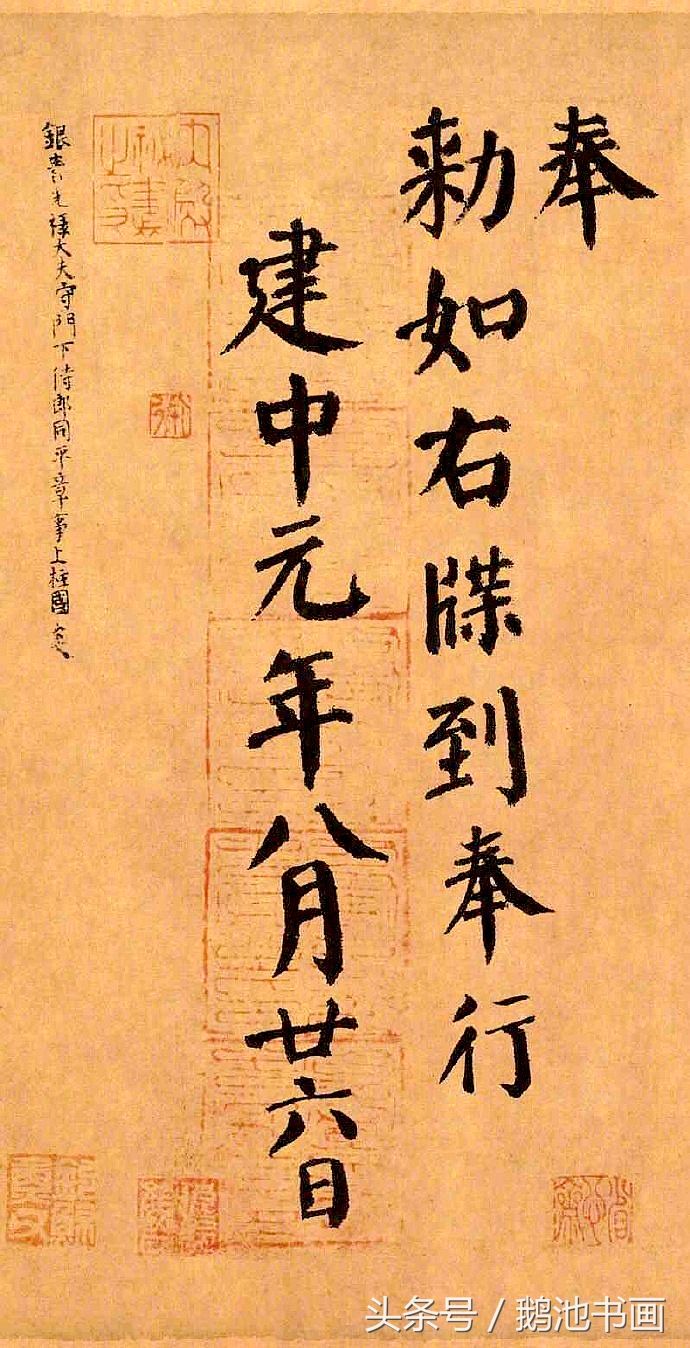 奉
勑如右牒到奉行
建中元年八月廿六日
銀青光祿大夫守門下侍郎同平章事上柱國
头条号 / 鹅池书画